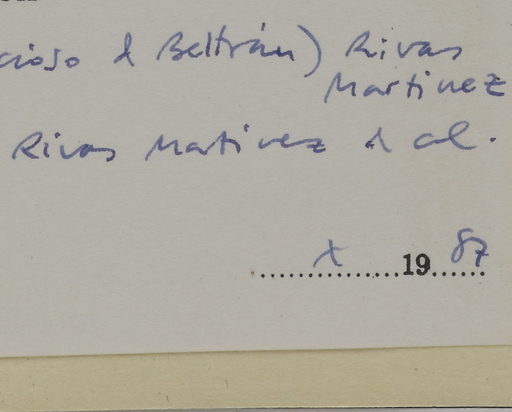 cioso & Beltrán) Rivas
Martinez
Rivas Martinez & al.
X 1987